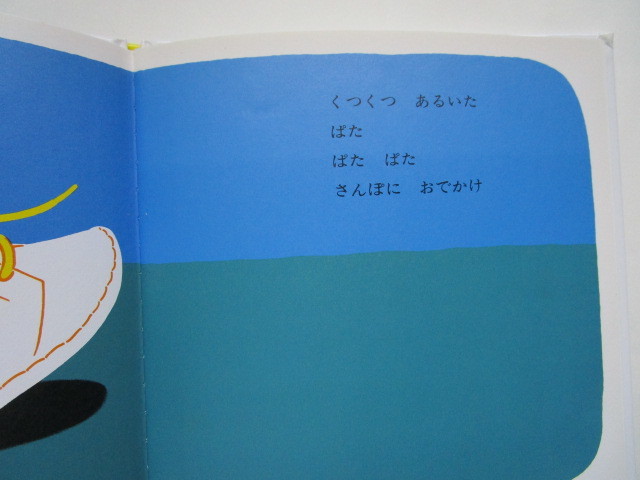 くつくつ　あるいた
ぱた
ぱた　ぱた
さんぽに　おでかけ